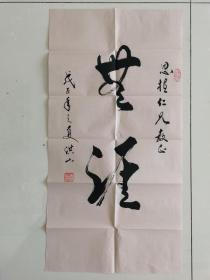 思雄仁兄教正
無涯
戊子年之夏洪山